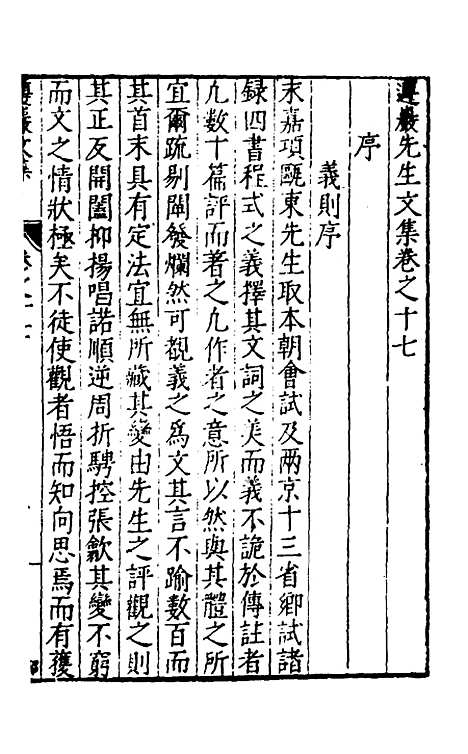 遵巖先生文集卷之十七
序
義則序
永嘉項甌東先生取本朝會試及兩京十三省鄉試諸
録四書程式之義擇其文詞之美而義不詭於傳註者
凢數十篇評而著之凢作者之意所以然與其體之所
宜爾疏剔闡發爛然可觀義之為文其言不踰數百而
其首末具有定法宜無所藏其變由先生之評觀之則
其正反開闔抑揚唱諾順逆周折騁控張歙其變不窮
而文之情狀極矣不徒使觀者悟而知向思焉而有獲